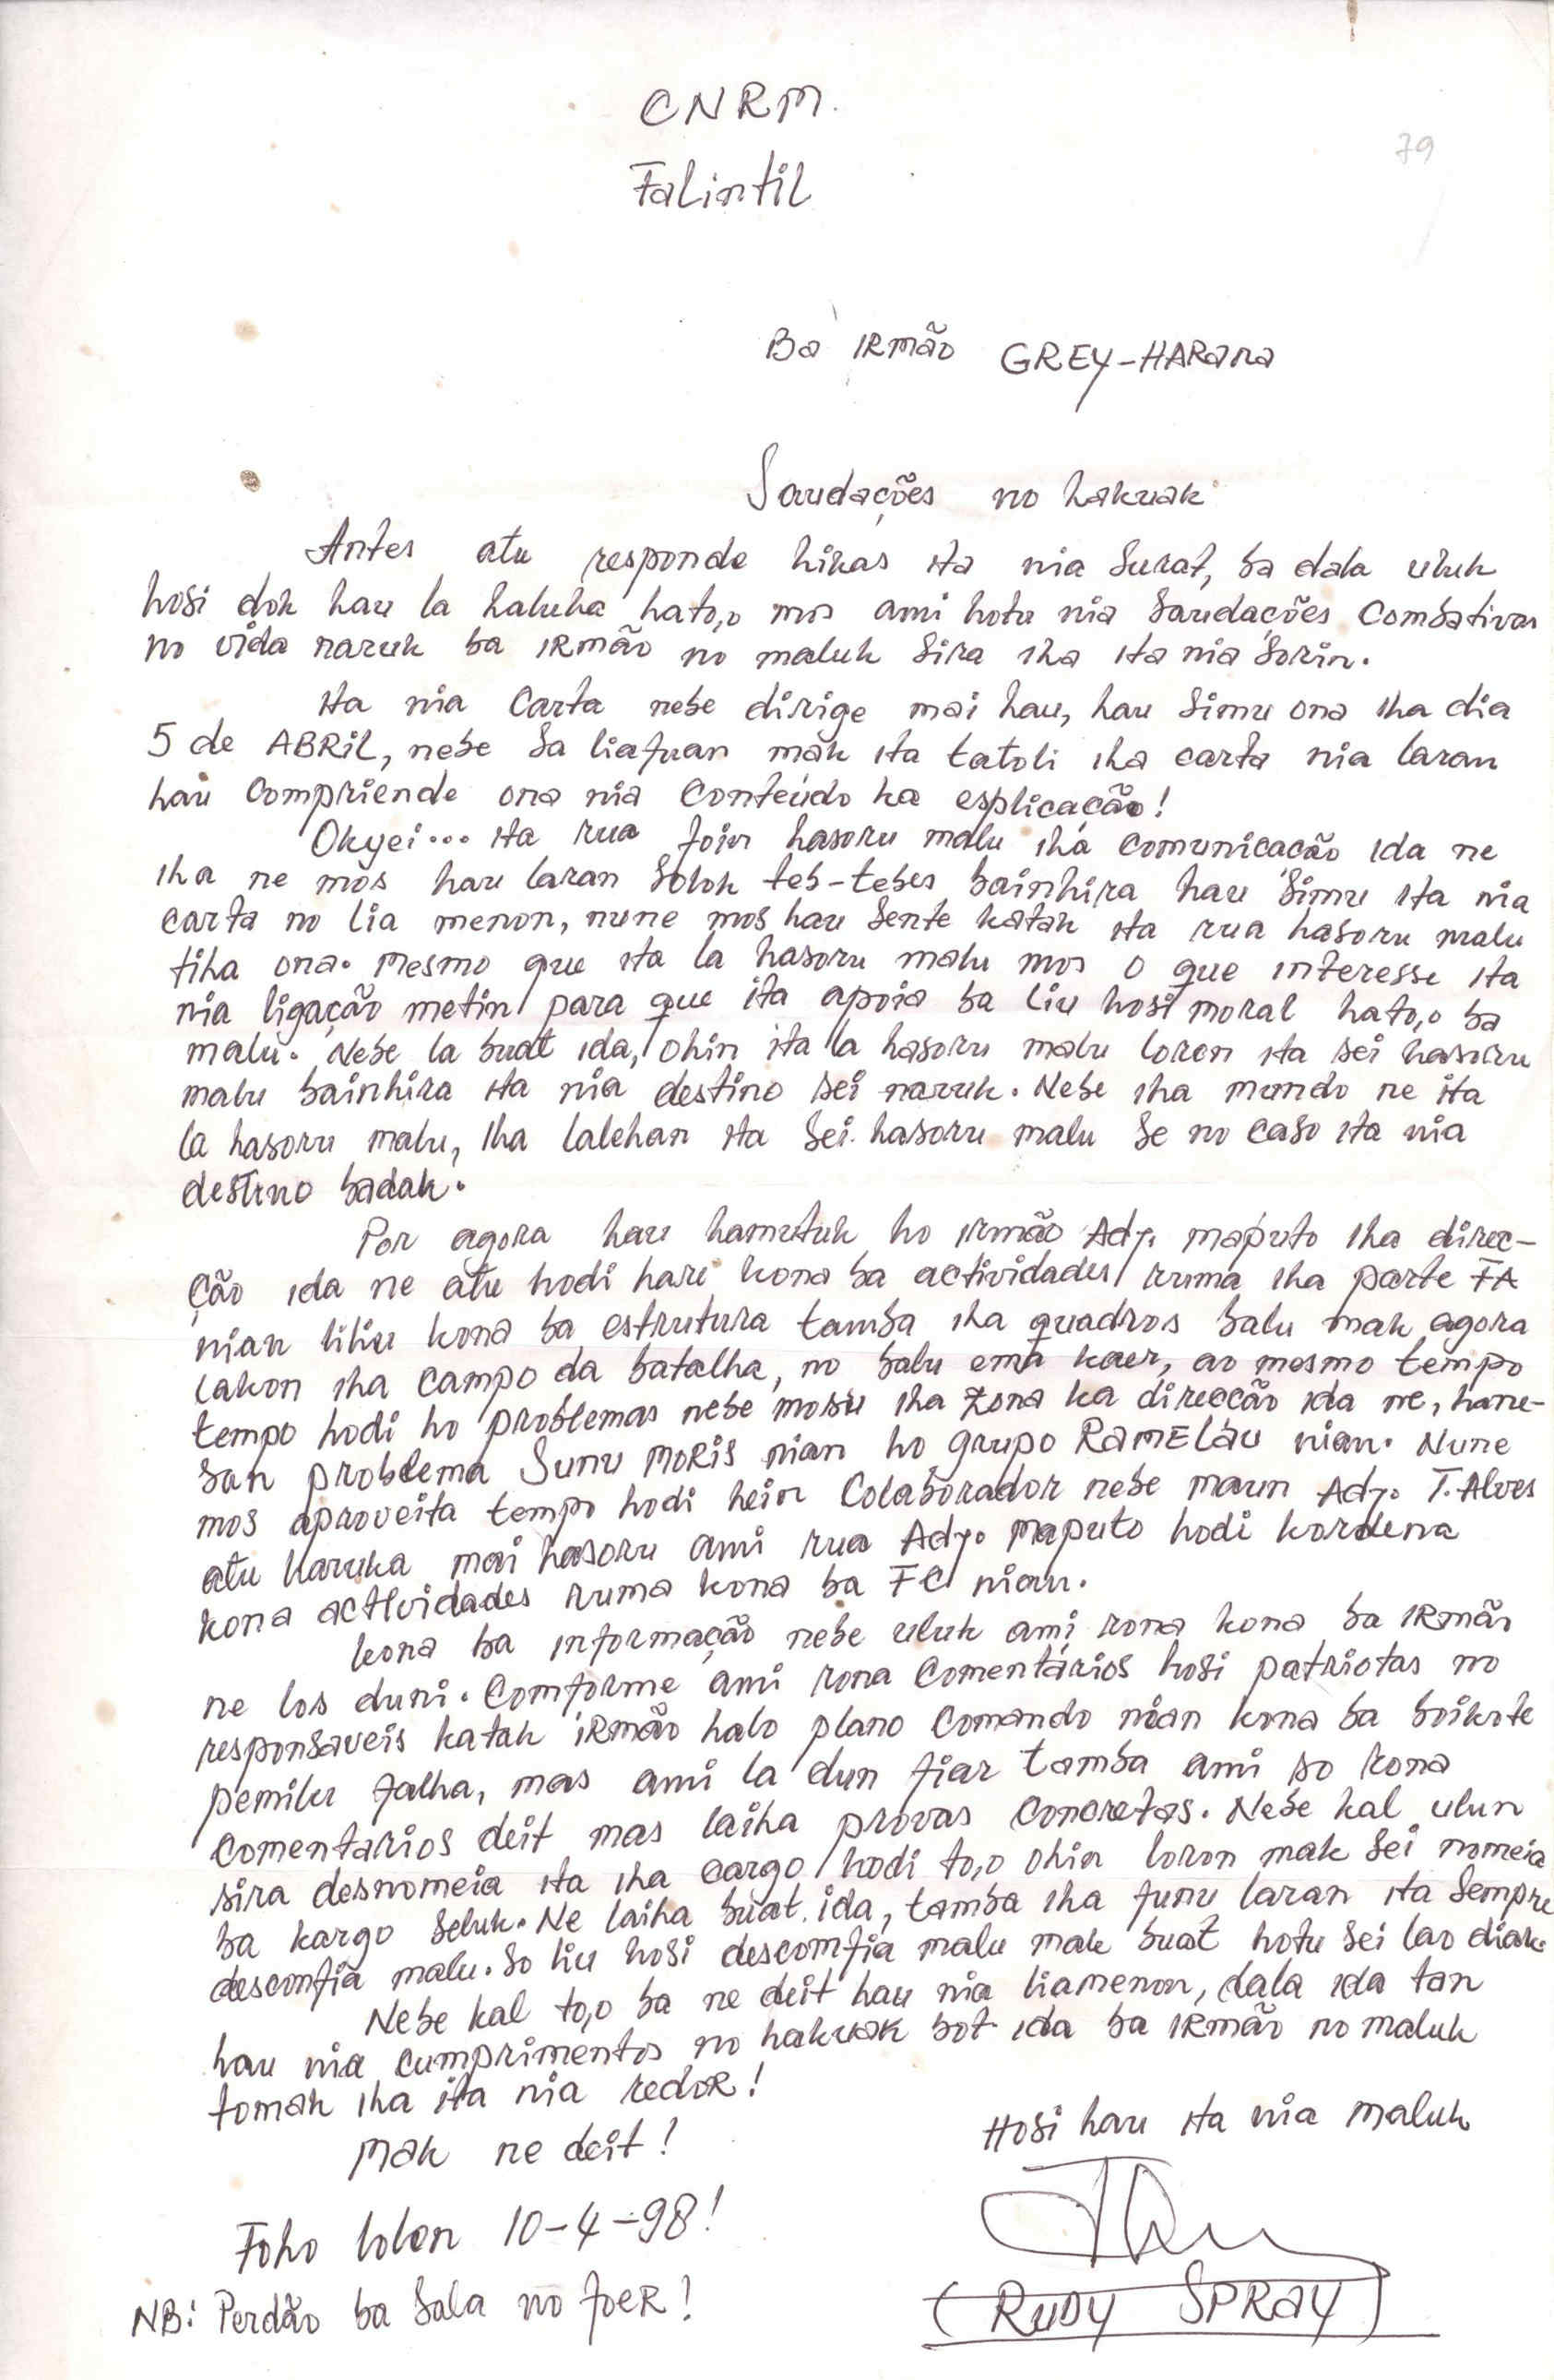 CNRM.
79
Falintil
Ba IRmão GREY-HARana
Saudações no hakuak
Antes atu responde hikas ita nia Surat, ba dala uluk
hosi dok hau la haluha hato,o mos ami hotu nia Saudações Combativas
no vida naruk ba IRmão no maluk Sira iha ita nia Sorin.
ita nia Carta nebe dirige mai hau, hau Simu ona iha dia
5 de ABRiL, nebe Sa liafuan mak ita tatoli iha carta nia laran
hau Compriende ona nia Conteúdo ka esplicação!
Okyei... ita rua foin hasoru malu iha comunicacão ida ne
iha ne mos hau laran Solok teb-tebes bainhira hau Simu ita nia
carta no lia menon, nune mos hau Sente katak ita rua hasoru malu
tiha ona. Mesmo que ita la hasoru malu mos o que interesse ita
nia ligação metin para que ita apoia ba liu hosi moral hato,o ba
malu. Nebe la buat ida, ohin ita la hasoru malu loron ita sei hasoru
malu bainhira ita nia destino sei naruk. Nebe iha mundo ne ita
la hasoru malu, iha lalehan ita Sei hasoru malu Se no caso ita nia
destino badak.
Por agora hau hamutuk ho irmão Adj. maputo iha direc-
ção ida ne atu hodi hare kona ba actividades ruma iha parte FA
nian liliu kona ba estrutura tamba iha quadros balu mak agora
lakon iha campo da batalha, no balu ema kaer, ao mesmo tempo
tempo hodi ho problemas nebe mosu iha zona ka direcção ida ne, hane-
san problema Sunu MORIS nian ho grupo RAMELAU nian. Nune
mos aproveita tempo hodi hein Colaborador nebe maun Adj. T. Alves
atu haruka mai hasoru ami rua Adj. Maputo hodi kordena
kona actividades ruma kona ba FC nian.
kona ba informação nebe uluk ami rona kona ba IRmão
ne los duni. Comforme ami rona Comentários hosi patriotas no
responsaveis katak IRmão halo plano Comando nian kona ba boikote
pemilu falha, mas ami la dun fiar tamba ami so rona
comentarios deit mas laiha provas Concretas. Nebe kal ulun
sira desnomeia ita iha cargo hodi to,o ohin loron mak Sei nomeia
ba kargo Seluk. Ne laiha buat ida, tamba iha funu laran ita Sempre
desconfia malu. So liu hosi descomfia malu mak buat hotu Sei lao diak.
Nebe kal to,o ba ne deit hau nia liamenon, dala ida tan
hau nia cumprimentos no hakuak bot ida ba IRmão no maluk
tomak iha ita nia redoR!
Mak ne deit!
Hosi hau ita nia maluk
Foho lolon 10-4-98!
(RUDY SPRAY)
NB: Perdão ba Sala no foeR!